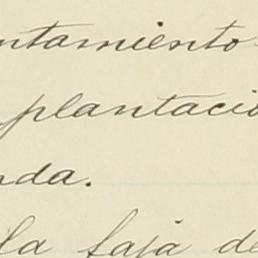 ntamiento
plantació
nda.
la faja de